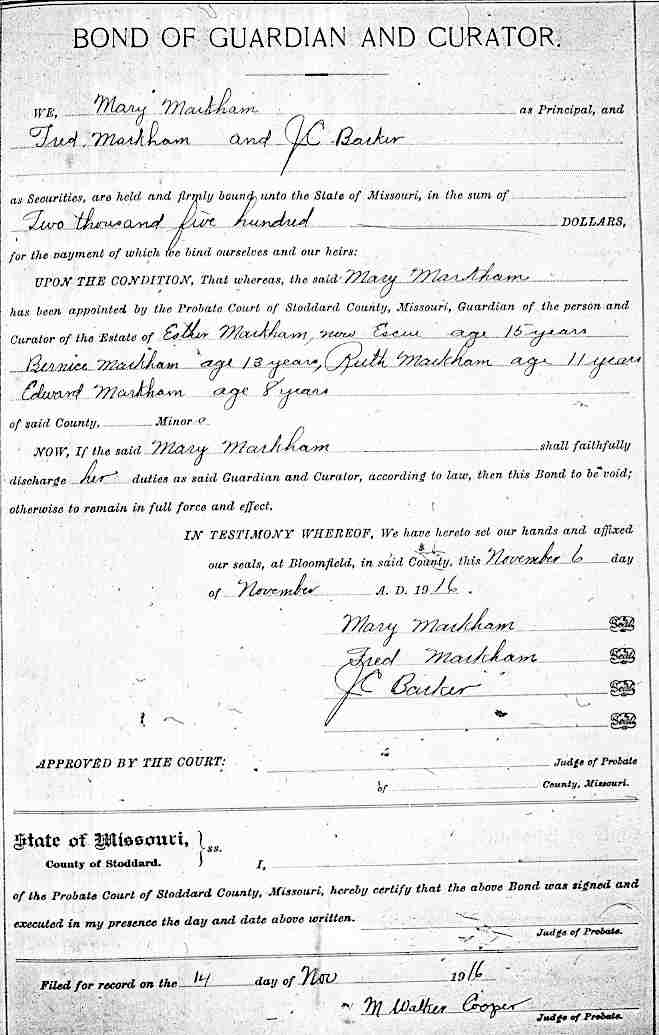 BOND OF GUARDIAN AND CURATOR.
WE, Mary Markham as Principal, and
Fred Markham and J C Barker
as Securities, are held and firmly bound unto the State of Missouri, in the sum of
Two thousand five hundred DOLLARS,
for the payment of which we bind ourselves and our heirs:
UPON THE CONDITION, That whereas, the said Mary Markham
has been appointed by the Probate Court of Stoddard County, Missouri, Guardian of the person and
Curator of the Estate of Esther Markham, now Escue age 15 years
Bernice Markham age 13 years, Ruth Markham age 11 years
Edward Markham age 8 years
of said County, Minor s
NOW, If the said Mary Markham shall faithfully
discharge her duties as said Guardian and Curator, according to law, then this Bond to be void;
otherwise to remain in full force and effect.
IN TESTIMONY WHEREOF, We have hereto set our hands and affixed
our seals, at Bloomfield, in said County, this November 6 day
of November A. D. 1916.
Mary Markham Seal
Fred Markham Seal
J C Barker Seal
Seal
APPROVED BY THE COURT: Judge of Probate
of County, Missouri.
State of Missouri, } ss.
County of Stoddard. I,
of the Probate Court of Stoddard County, Missouri, hereby certify that the above Bond was signed and
executed in my presence the day and date above written.
Judge of Probate.
Filed for record on the 14 day of Nov 1916
M Walker Cooper
Judge of Probate.